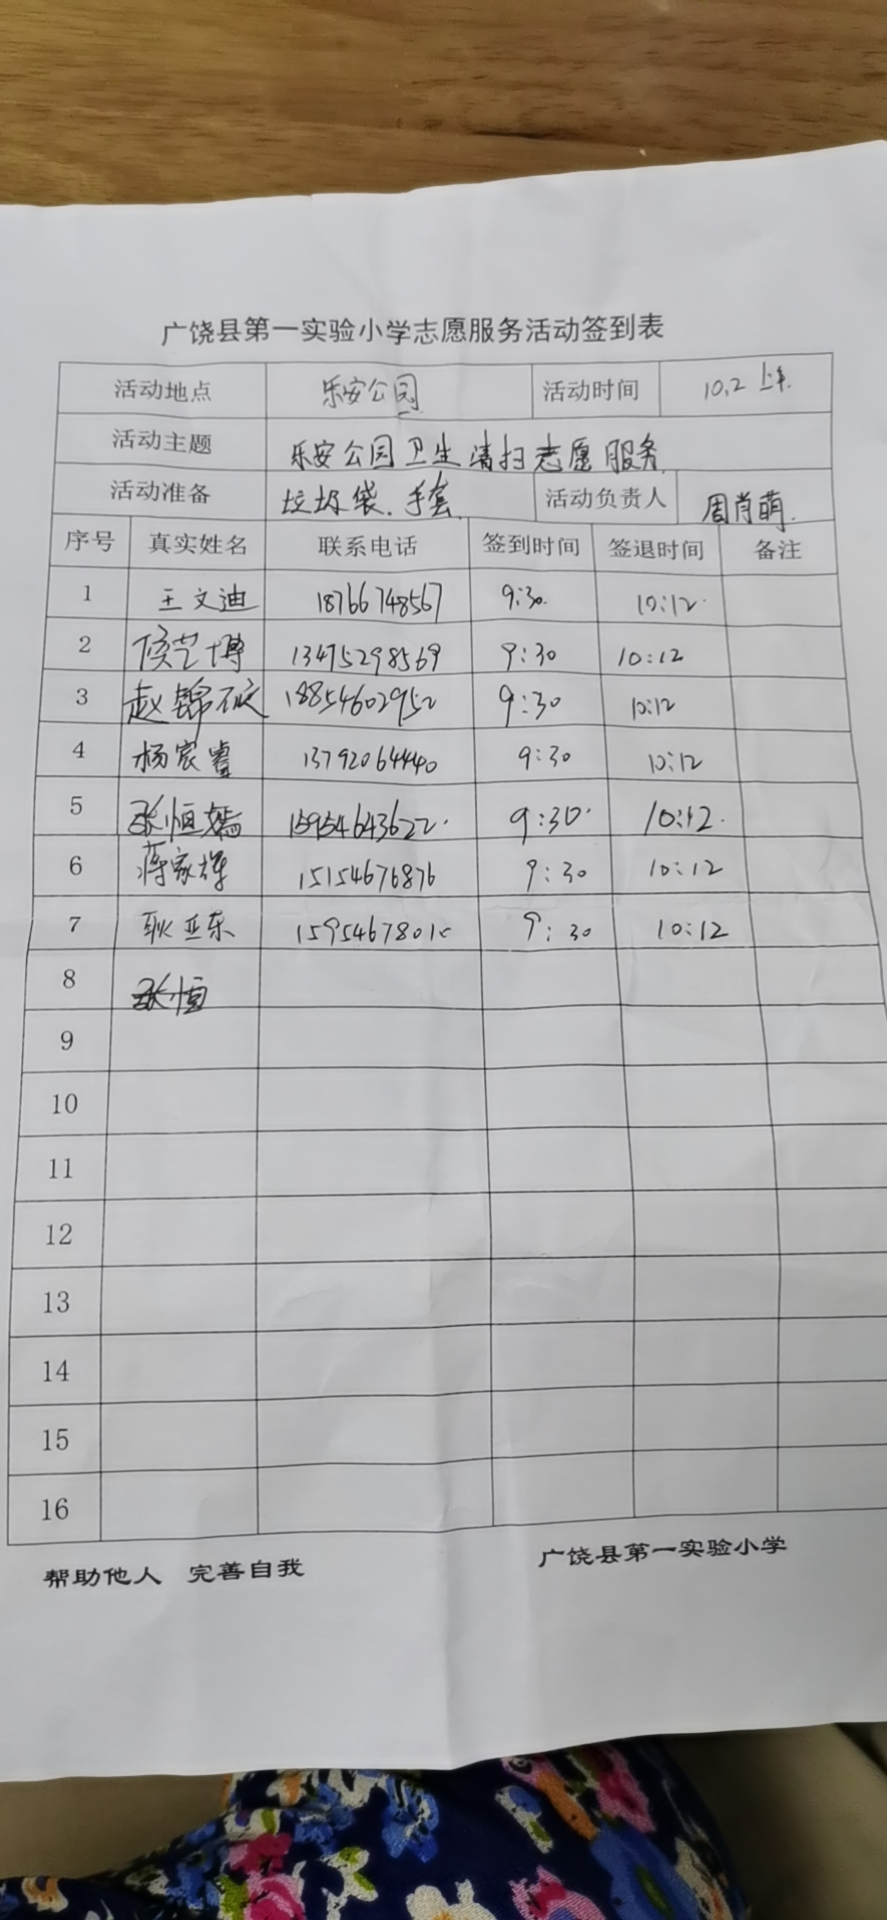 广饶县第一实验小学志愿服务活动签到表
活动地点 乐安公园 活动时间 10.2 上午
活动主题 乐安公园卫生清扫志愿服务
活动准备 垃圾袋、手套 活动负责人 周肖萌
序号 真实姓名 联系电话 签到时间 签退时间 备注
1 王文迪 18766748567 9:30 10:12
2 侯艺博 13475298569 9:30 10:12
3 赵锦 18854602952 9:30 10:12
4 杨宸睿 13792064440 9:30 10:12
5 张恒嫣 15954643622 9:30 10:12
6 蒋家祥 15154676876 9:30 10:12
7 耿亚东 9:30 10:12
8 张恒
9
10
11
12
13
14
15
16
帮助他人 完善自我 广饶县第一实验小学